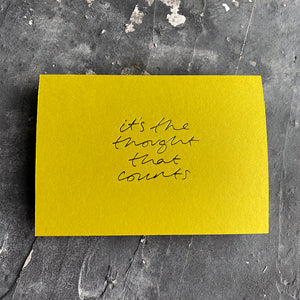 it's the
thought
that
counts